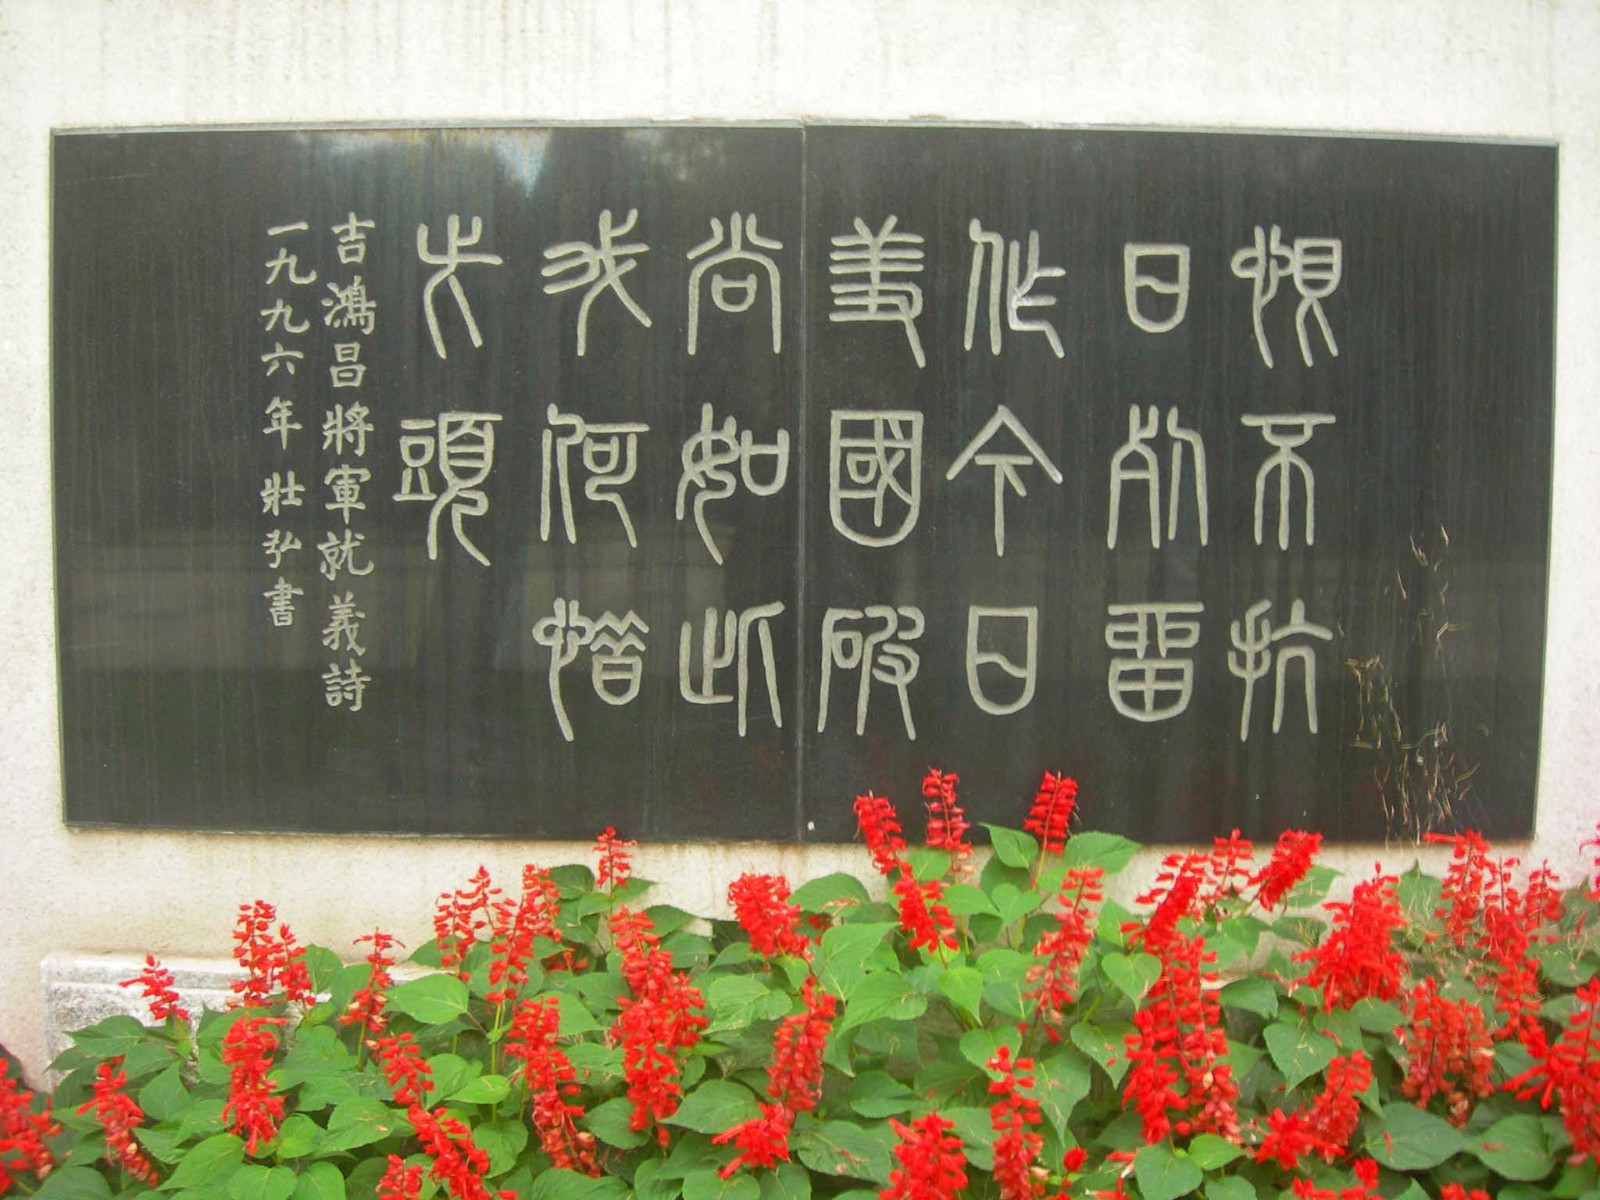 恨不抗
日死留
作今日
羞國破
尚如此
我何惜
此頭
吉鴻昌將軍就義詩
一九九六年壯弘書